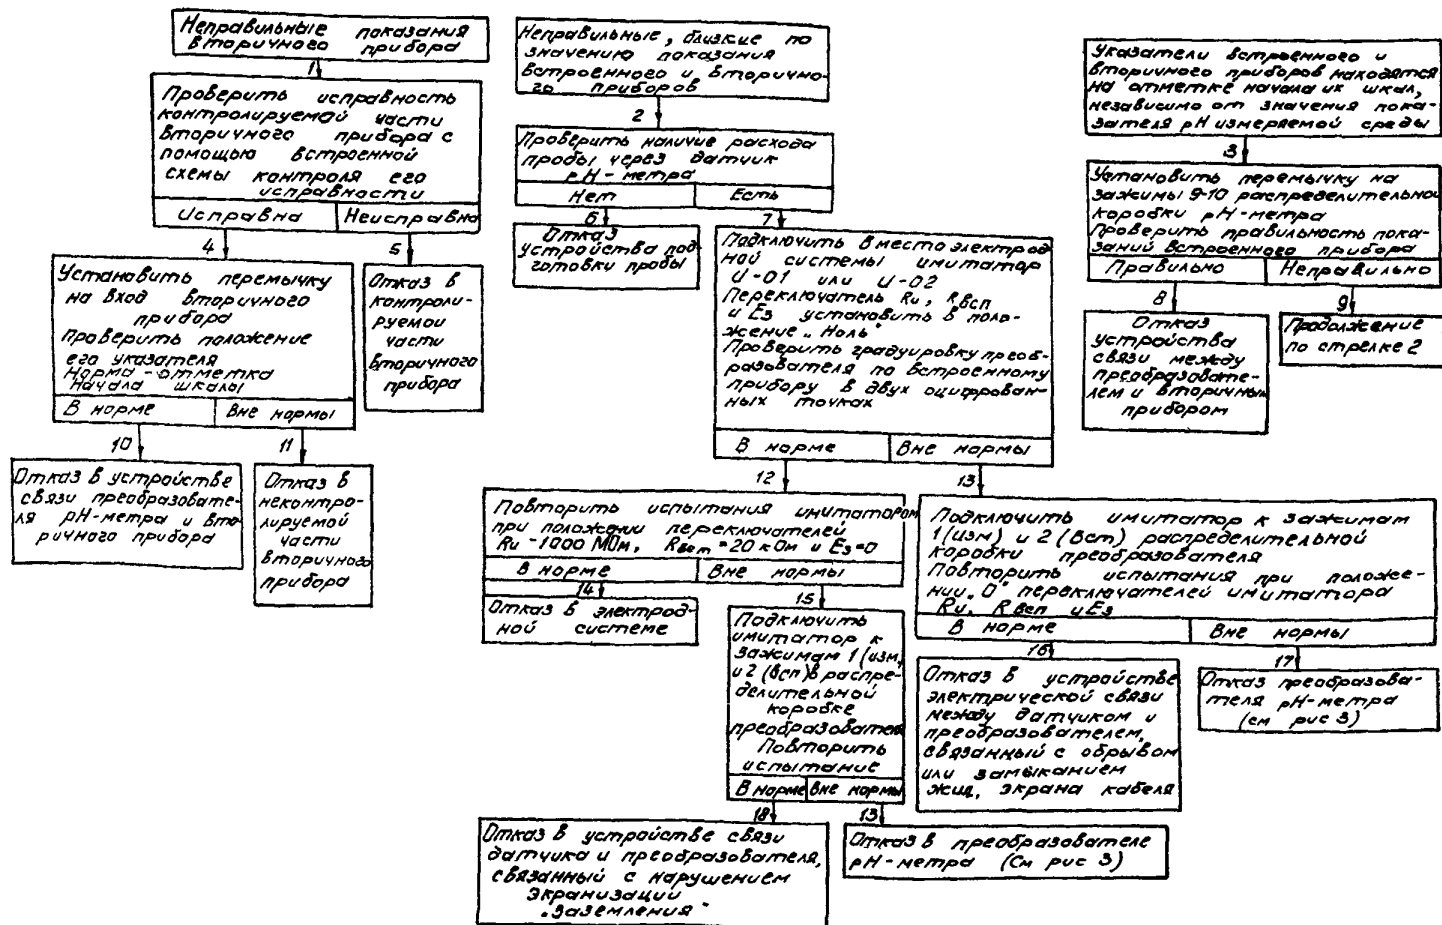 Неправильные показания
вторичного прибора
1
Проверить исправность
контролируемой части
вторичного прибора с
помощью встроенной
схемы контроля его
исправности
Исправна
Неисправна
4
5
Установить перемычку
на вход вторичного
прибора
Проверить положение
его указателя
Норма-отметка
начала шкалы
В норме
Вне нормы
Отказ в
контроли-
руемой
части
вторичного
прибора
10
11
Отказ в устройстве
связи преобразовате-
ля рН-метра и вто-
ричного прибора
Отказ в
неконтро-
лируемой
части
вторичного
прибора
Неправильные, близкие по
значению показания
встроенного и вторично-
го приборов
2
Проверить наличие расхода
пробы через датчик
рН-метра
Нет
Есть
6
7
Отказ
устройства под-
готовки пробы
Подключить вместо электрод
ной системы имитатор
И-01 или И-02
Переключатель Rи, Rвсп
и Ез установить в поло-
жение „Ноль"
Проверить градуировку преоб-
разователя по встроенному
прибору в двух оцифрован-
ных точках
В норме
Вне нормы
12
13
Повторить испытания имитатором
при положении переключателей
Rи -1000 МОм, Rвст =20 кОм и Ез=0
В норме
Вне нормы
14
15
Отказ в электрод-
ной системе
Подключить
имитатор к
зажимам 1 (изм,
и 2 (всп) в распре-
делительной
коробке
преобразователя
Повторить
испытание
В норме
Вне нормы
18
13
Отказ в устройстве связи
датчика и преобразователя,
связанный с нарушением
экранизаций
„заземления"
Отказ в преобразователе
рН-метра (См рис 3)
Подключить имитатор к зажимам
1 (изм) и 2 (Вст) распределительной
коробки преобразователя
Повторить испытания при положе-
нии „О" переключателей имитатора
Rи, Rвсп и Ез
В норме
Вне нормы
16
17
Отказ в устройстве
электрической связи
между датчиком и
преобразователем,
связанный с обрывом
или замыканием
жил, экрана кабеля
Отказ преобразова-
теля рН-метра
(см рис 3)
Указатели встроенного и
вторичного приборов находятся
на отметке начала их шкал,
независимо от значения пока-
зателя рН измеряемой среды
3
Установить перемычку на
зажимы 9-10 распределительной
коробки рН-метра
Проверить правильность пока-
заний встроенного прибора
Правильно
Неправильно
8
9
Отказ
устройства
связи между
преобразовате-
лем и вторичным
прибором
Продолжение
по стрелке 2